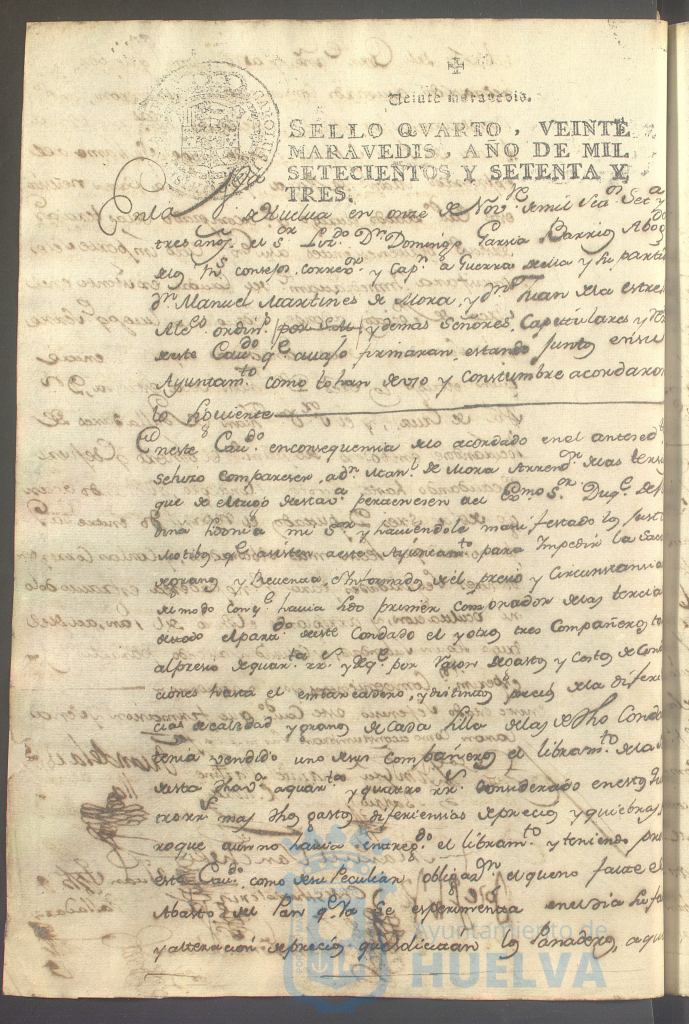 Veinte maravedis.
SELLO QVARTO, VEINTE
MARAVEDIS, AÑO DE MIL
SETECIENTOS Y SETENTA Y
TRES.
En la de Huelva en onze de Nov.re de mil
tres años el S.or Liz.do D.n Domingo Garsia Barrios Abog.do
de los R.s consejos, correx.or y Cap.n a Guerra de ella y su parti
d.n Manuel Martines de Mora, y d.n Juan de la estre
Alc.s ordin.s y demas señores Capitulares y
de este Cav.do q.e avajo firmaran estando juntos en su
Ayuntam.to como lo han de uso y constumbre acordaron
lo siguiente
En este Cav.do en consequensia de lo acordado en el antesed.te
se hizo comparecer a d.n Man.l de Mora Arrend.or de las tersias
que de el trigo de esta v.a pertenesen al Ex.mo S.or Duq.e de
dina sidonia mi S.or y haviendole manifestado los just
motibos q.e asisten a este Ayuntam.to para Impedir la saca
de grano y Revenza e Informado de el presio y Circunstansia
del modo con q.e havia sido primer comprador de las tercias
de todo el par.do de este Condado el y otros tres Compañeros
al presio de quar.ta rr.s y q.e por razon de gastos y Costos de Con
ciones hasta el embarcadero, y distintos precios de la diferen
cias de calidad y grano de cada Villa de las de dho Conda
tenia vendido uno de sus compañeros el libram.to de la
de esta dha v.a a quar.ta y quatro rr.s considerado en estos
tro rr.s mas dhos gastos diferiensias de presios y quiebras
ro que aun no havia entreg.do el libram.to y teniendo pre
este Cav.do como de su peculiar obligaz.on el que no falte el
Abasto del Pan q.e ya se esperimenta en el dia su fal
y alteracion de presio que solicitan los Panaderos, a qui
Ayuntamiento de
HUELVA